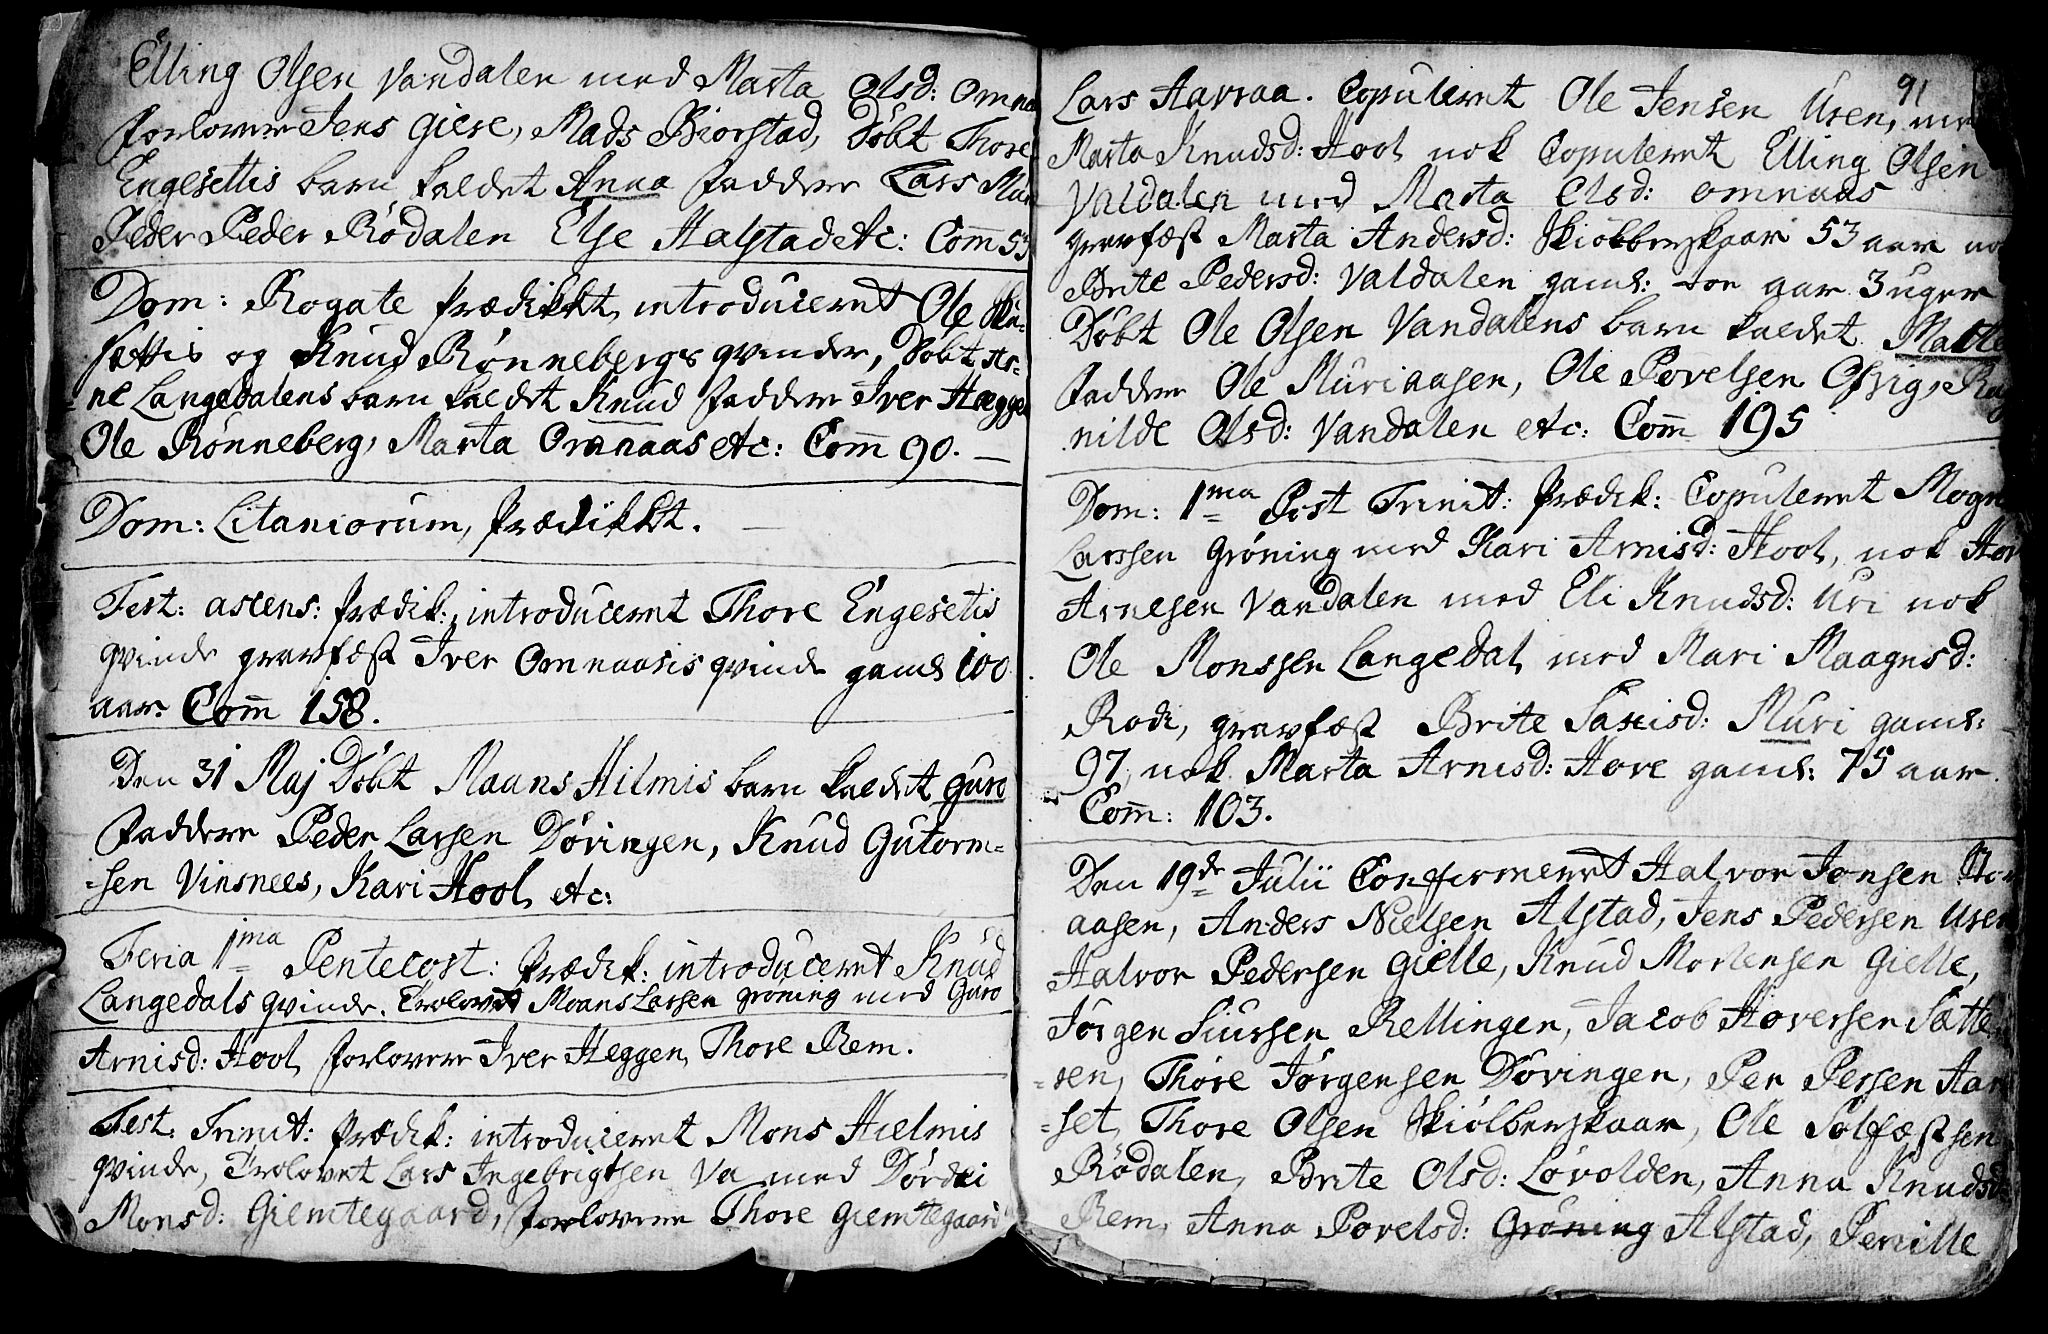 Elling Olsen Vandalen med Marta Olsd: Omna
forlovere Jens Giere, Mads Biorstad, Døbt Thore
Engesettis barn kaldet Anna faddere Lars Mur
Peder Peder Rödalen Else Halstad etc: Com̅ 53
Dom: Rogate prædikkt, introduceret Ole
settis og Knud Rønnebergs qvinder, Døbt Ar-
ne Langedalens barn kaldet Knud faddere Iver Hegge
Ole Rønneberg, Marta Omnaas etc: Com̅ 90.
Dom: Litaniorum, prædikkt.
Fest: ascens: prædik: introduceret Thore Engesetis
qvinde gravfæst Iver Omnaasis qvinde gaml 100
aar. Com̅ 158.
Den 31 Maj Døbt Maans Hilmis barn kaldet Guro
faddere Peder Larsen Døvingen, Knud Gutorm-
-sen Vinsnees, Kari Hool, etc:
Feria 1ma Pentecost: prædik: introduceret Knud
Langedals qvinde. Trolovet Moans Larsen Grøning med Guro
Arnisd: Hool, forlovere Iver Heggen, Thore Rem.
Fest: Trinit: prædik: introduceret Mons Hielmis
qvinde, Trolovet Lars Ingebrigtsen Va med Dórdei
Monsd: Giemtegaard, forlovere Thore Giemtegaard
91
Lars Aavraa. Copuleret Ole Jensen Uren, med
Marta Knudsd: Hool, nok Copuleret Elling Olsen
Valdalen med Marta Olsd: Omnaas
gravfæst Marta Andersd: Skiölberskaar 53 aar nok
Brite Pedersd: Valdalen gaml: toe aar 3 uger
Døbt Ole Olsen Vandalens barn kaldet
faddere Ole Muriaasen, Ole Povelsen Osvig, Rag
nilde Olsd: Vandalen etc: Com̅ 195
Dom: 1ma Post Trinit: prædik: Copuleret Mogns
Larssen Grøning med Kari Arnisd: Hool, nok
Arnesen Vandalen med Eli Knudsd: Uri nok
Ole Monssen Langedal, med Mari Maagnsd:
Rodi, gravfæst Brite Saxisd: Muri gaml:
97, nok Marta Arnisd: Hove gaml: 75 aar.
Com̅: 103.
Den 19de Julii Confirmeret Halvor Jonsen
aasen, Anders Nielsen Alstad, Jens Pedersen Uren
Halvor Pedersen Gielle, Knud Mortensen Gielle,
Jørgen Siursen Rellingen, Jacob Hoversen Satte
-ren, Thore Jørgensen Døvingen, Per Persen Aar
-set, Thore Olsen Skiölberskaar, Ole Solfæstsen
Rödalen, Brite Olsd: Lövolden, Anna Knudsd:
Rem, Anna Povelsd: Grøning Alstad, Pernille